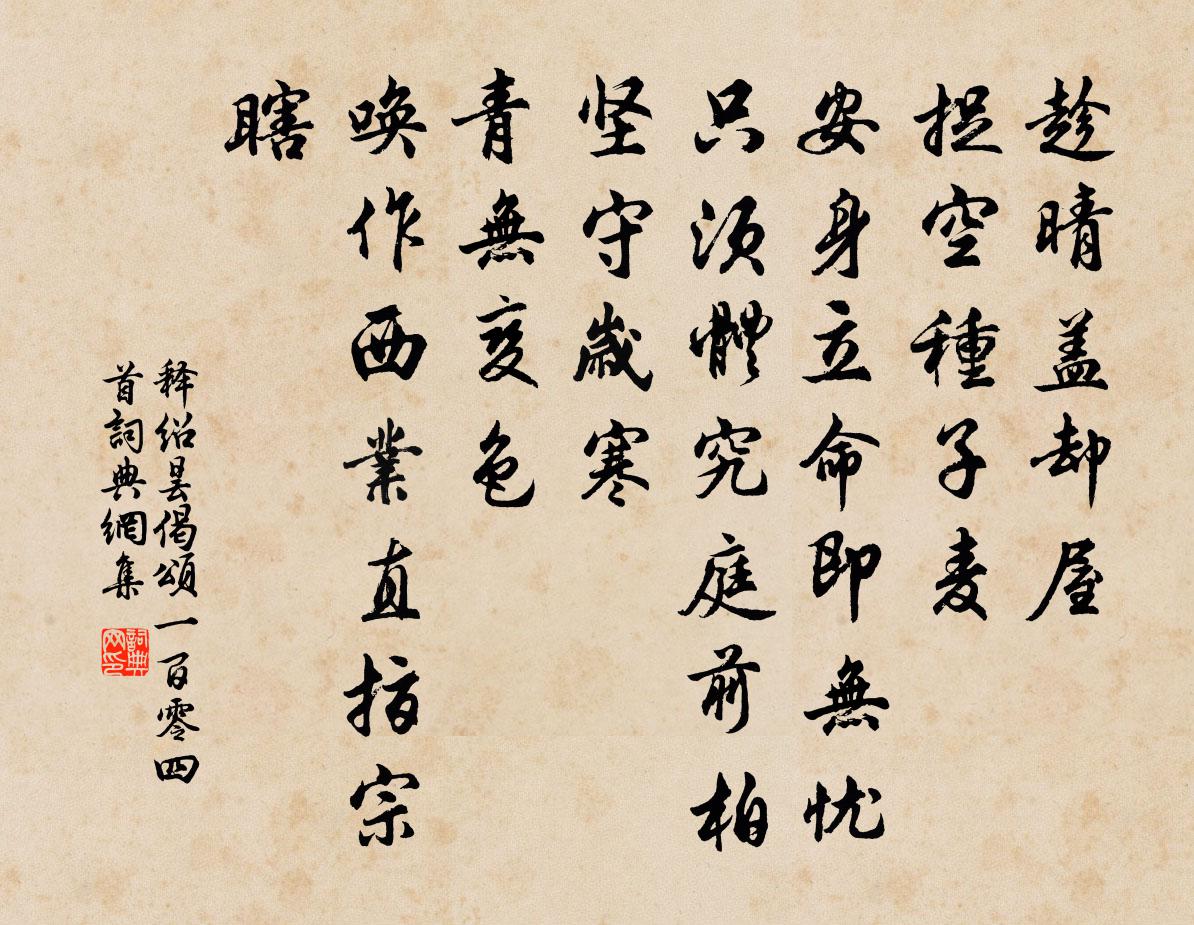 趁晴盖却屋
捉空種子麦
安身立命即無忧
只须體究庭前柏
坚守歳寒
青無变色
唤作西業直指宗
瞎
释绍昙偈頌一百零四
首詞典網集
詞典网印